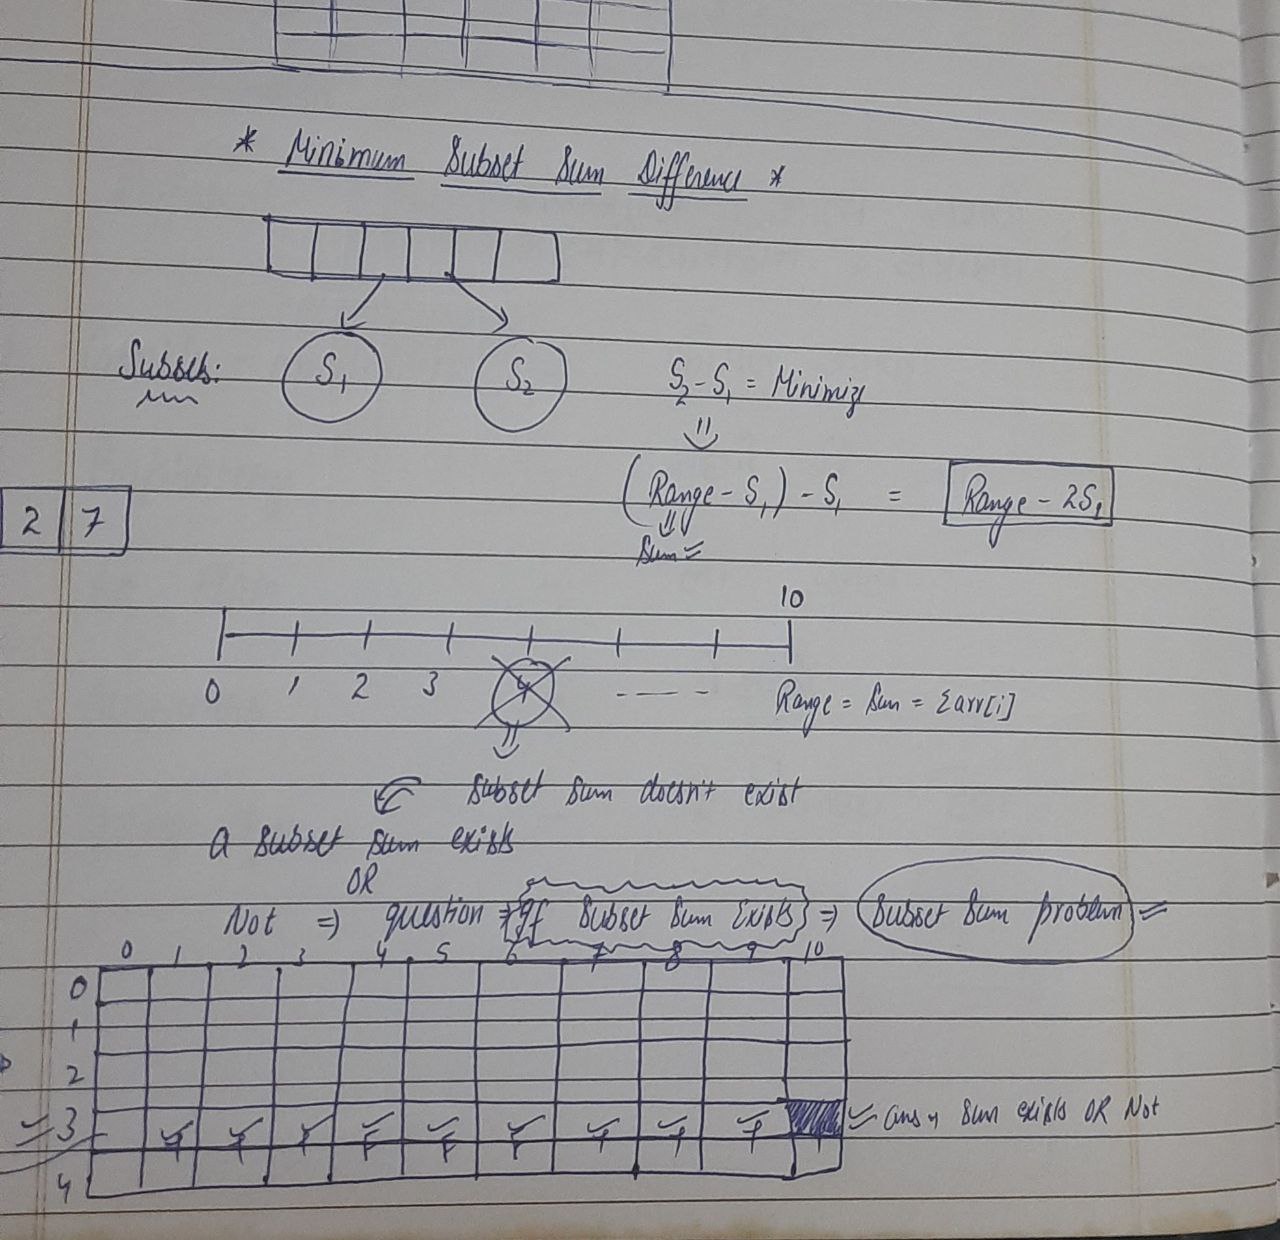 * Minimum Subset Sum Difference *
Subsets: S1 S2 S2 - S1 = Minimize
(Range - S1) - S1 = Range - 2S1
Sum
2 7
10
0 1 2 3 4 ---- Range = Sum = Σarr[i]
Subset Sum doesn't exist
a subset sum exists
OR
Not ⇒ question If Subset Sum Exists ⇒ Subset Sum problem
0 1 2 3 4 5 6 7 8 9 10
0
1
2
3 ans → Sum exists OR Not
4